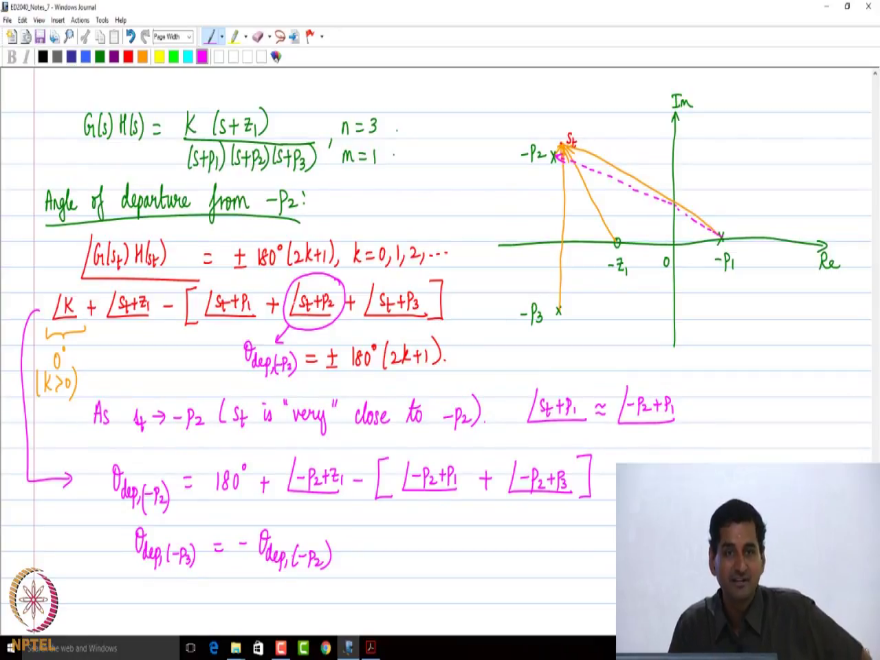 ED2040_Notes_7 - Windows Journal
File Edit View Insert Actions Tools Help
Page Width
B I
G(s) H(s) = K (s+z₁) / (s+p₁)(s+p₂)(s+p₃) , n=3 .
m=1 .
Angle of departure from -p₂:
∠G(s_t) H(s_t) = ± 180° (2k+1), k=0, 1, 2, ...
∠K + ∠s_t+z₁ - [ ∠s_t+p₁ + ∠s_t+p₂ + ∠s_t+p₃ ]
0°
(K>0)
θ_dep,(-p₂) = ± 180° (2k+1).
As s_t → -p₂ ( s_t is "very" close to -p₂). ∠s_t+p₁ ≈ ∠-p₂+p₁
θ_dep,(-p₂) = 180° + ∠-p₂+z₁ - [ ∠-p₂+p₁ + ∠-p₂+p₃ ]
θ_dep,(-p₃) = - θ_dep,(-p₂)
Im
s_t
-p₂
-z₁
0
-p₁
Re
-p₃
NPTEL
the web and Windows